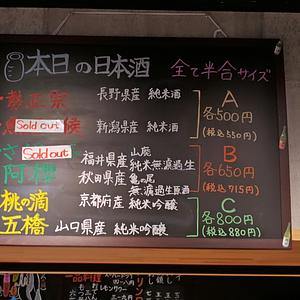 本日の日本酒 全て半合サイズ
正宗 長野県産 純米酒
Sold out 候 新潟県産 純米酒
A
各500円
(税込550円)
Sold out 福井県産 山廃純米無濾過生
阿櫻 秋田県産 亀の尾無濾過生原酒
B
各650円
(税込715円)
桃の滴 京都府産 純米吟醸
五橋 山口県産 純米吟醸
C
各800円
(税込880円)